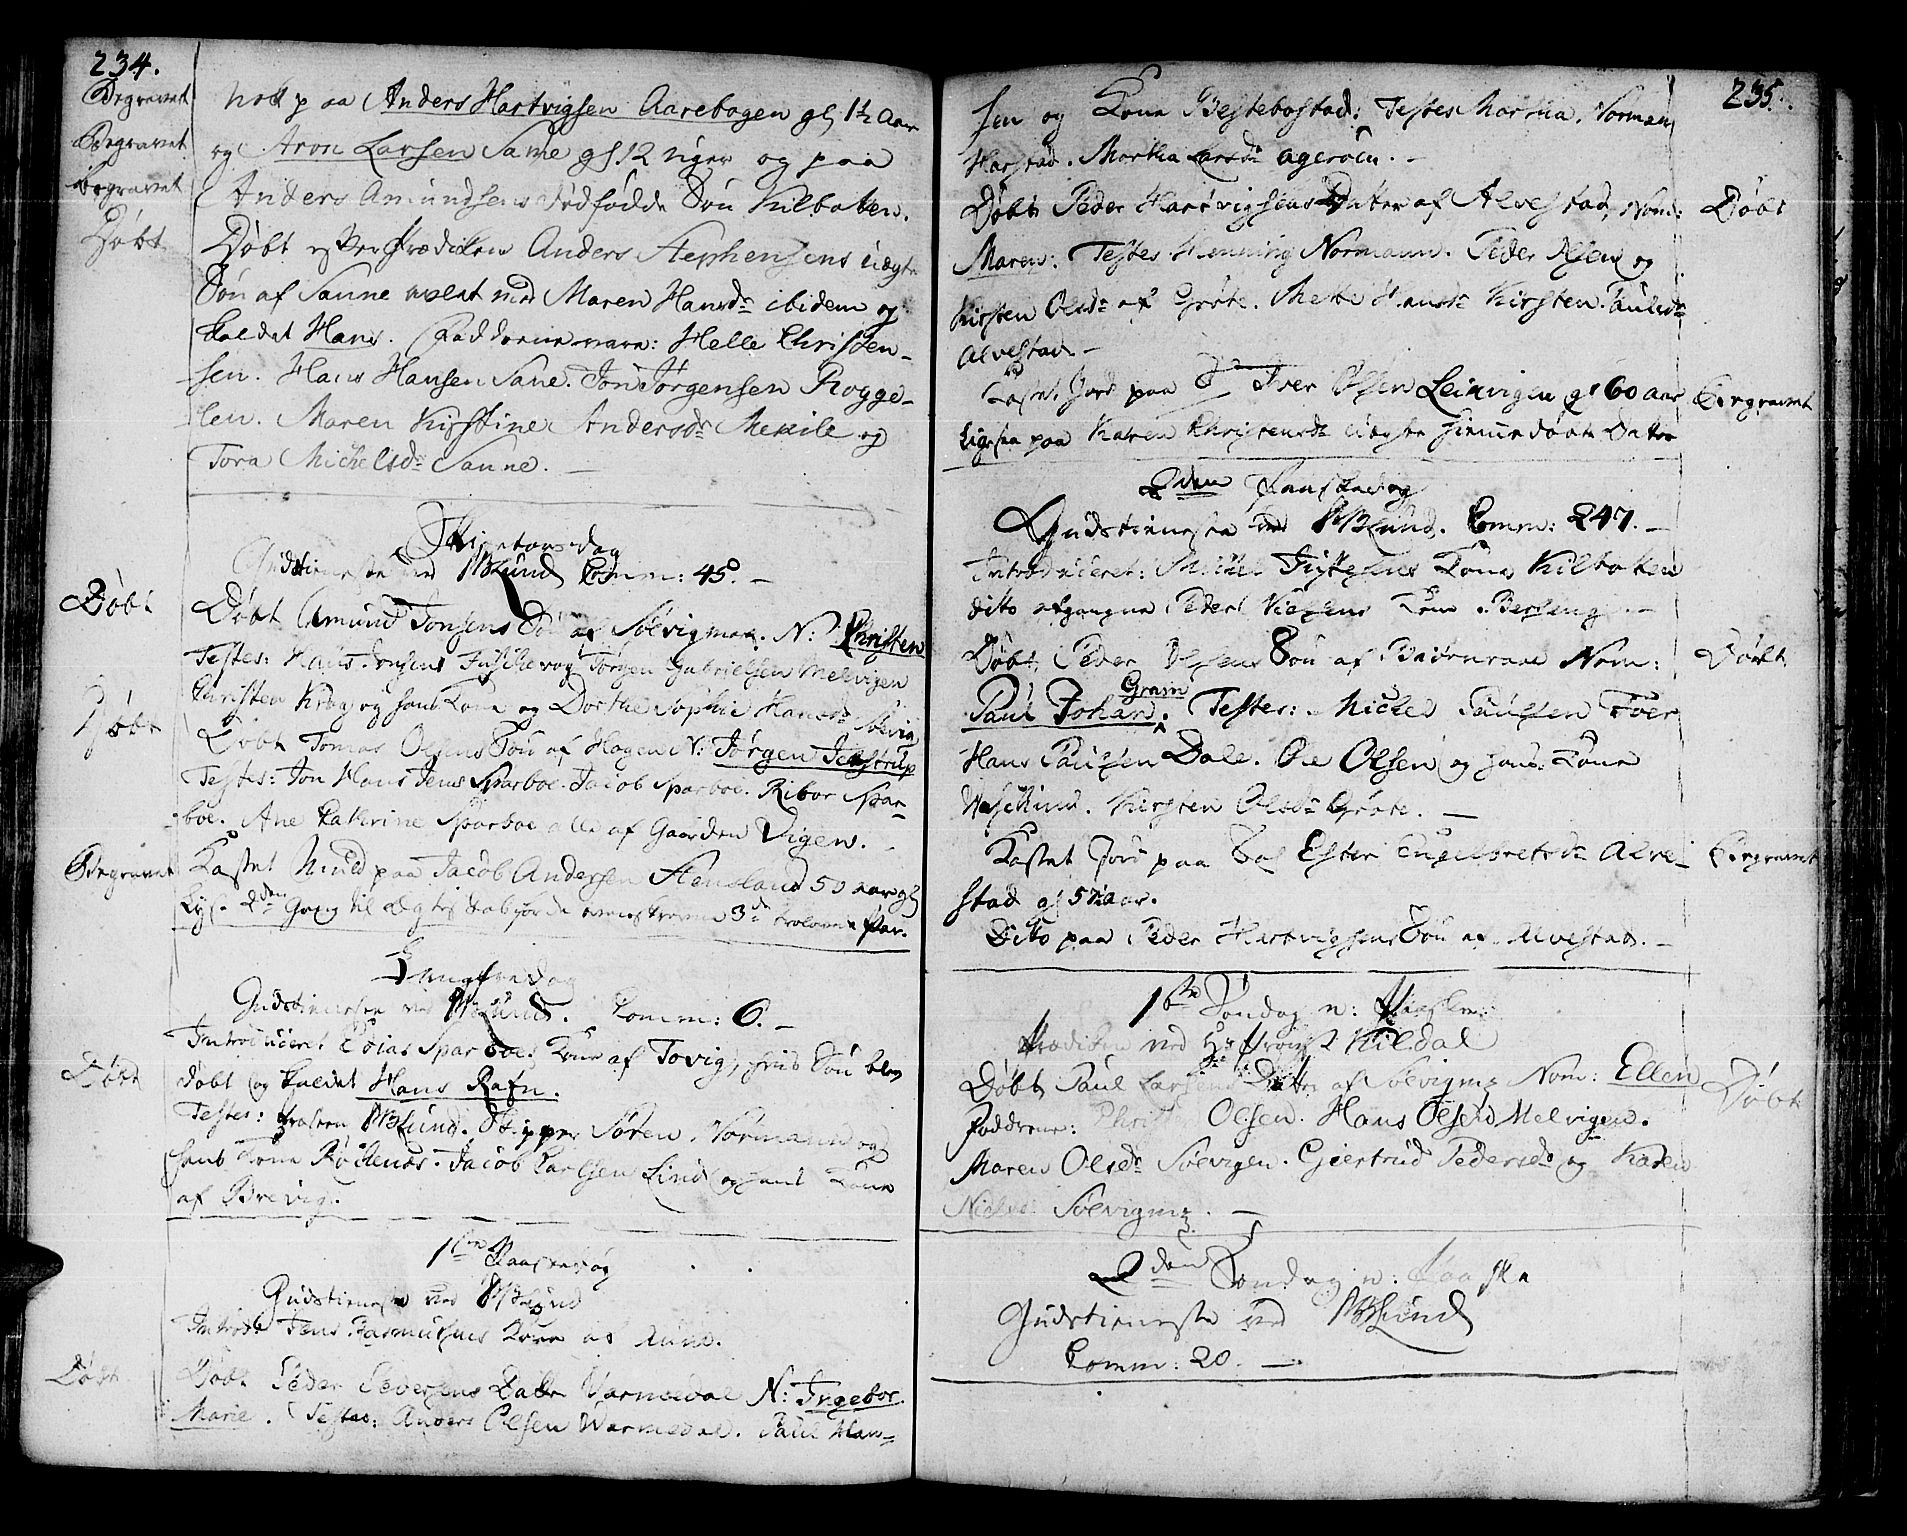 234.
Begravet
Begravet
Begravet
Døbt
paa Anders Hartvigsen Aarebogen gl 1½ Aar
og Aron Larsen Sane gl 12 uger og paa
Anders Amundsens dødfødde Søn Kilboten.
Døbt efter Prædiken Anders Stephensens uægte
Søn af Sanne avlet med Maren Hansdr ibidem og
kaldet Hans. Fadderne vare: Helle Christen-
sen. Hans Hansen Sane. Jon Jørgensen Rogge-
len. Maren Kirstine Andersdr Mekile og
Tora Michelsdr Sanne.
Skiertorsdag
Gudstieneste ved MBLund Comm: 45. –
Døbt
Døbt Amund Jonsens Søn af Sølevigmark. N: Christen
Testes: Hans Jonsens Jørgen Gabrielsen Melvigen
Christen Krog og hans Kone og Dorthe Sophie Hansdr Sølevig
Døbt
Døbt Tomas Olsens Søn af Hagen N: Jørgen Jenstrup
Testes: Jon Hans Jens Sparboe. Jacob Sparboe. Ribor Spar-
boe. Ane Catrine Sparboe alle af Gaarden Vigen.
Begravet
Kastet Muld paa Jacob Andersen Stensland 50 aar gl
Lys. 2den Gang til Ægteskab 3de trolovede Par.
Langfredag
Gudstienesten ved MBLund. Comm: 6. –
Introduceret Eoias Sparboes Kone af Tovig, hvis Søn blev
Døbt
døbt og kaldet Hans Rafn.
Testes: MBLund. Skipper Søren Normann og
hans Kone Røkenæs. Jacob Carlsen Lind og hans Kone
af Brevig.
1ste Paaskedag
Gudstieneste ved MBLund
Introd: Jens Rasmusens Kone af Aune.
Døbt
Døbt Peder Seversens Datter Varmedal N: Ingebor
Marie. Testes: Anders Olsen Warmedal. Paul Han-
235.
sen og Kone Bestebostad. Testes Martha Norman
Harstad. Martha Larsdr Agerøen. –
Døbt Peder Hartvigsens Datter af Alvestad, Nom:
Døbt
Maren: Testes Henning Normann. Peder Olsen og
Kirsten Olsdr af Grøte. Mette Hansdr Kirsten Paulsdr
Alvestad –
Kastet Jord paa Iver Olsen Leikvigen gl 60 aar
Begravet
Ligesaa paa Karen Christensdr uægte hiemmedøbt Datter
2den Paaskedag
Gudstienesten ved MBLund. Comm: 247. –
Introduceret: Michel Kone Kilboten
dito Peder Nielsens Kone Berseng. –
Døbt Peder Olsens Søn af Nom:
Døbt
Paul Johan Gram. Testes: Michel Paulsen
Hans Paulsen Dale. Ole Olsen og hans Kone
Kirsten Olsdr Grøte. –
Kastet Jord paa Ester Engelbretsdr Alve-
Begravet
stad gl 57½ Aar.
Dito paa Peder Hartvigsens Søn af Alvestad. –
1ste Søndag n: Paaske:
Prædiken ved Hr Kildal
Døbt Paul Larsens Datter af Sølevigmk Nom: Ellen
Døbt
Fadderne: Olsen. Hans Olsen Melvigen.
Maren Olsdr Sølevigen. Giertrud Pedersdr og Karen
Nielsd Sølevigmk. –
2den Søndag n: Paaske
Gudstieneste ved MBLund
Comm: 20. –